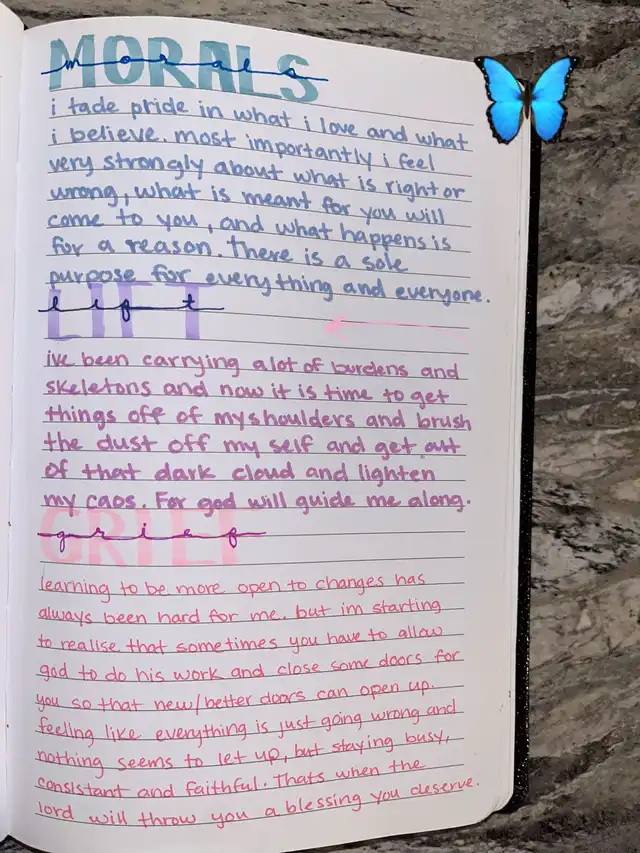 MORALS
morals
i tade pride in what i love and what
i believe. most importantly i feel
very strongly about what is right or
wrong, what is meant for you will
come to you, and what happens is
for a reason. There is a sole
purpose for everything and everyone.
LIFT
lift
ive been carrying alot of burdens and
skeletons and now it is time to get
things off of my shoulders and brush
the dust off my self and get out
of that dark cloud and lighten
my caos. For god will guide me along.
GRIEF
grief
learning to be more open to changes has
always been hard for me. but im starting
to realise that sometimes you have to allow
god to do his work and close some doors for
you so that new/better doors can open up.
feeling like everything is just going wrong and
nothing seems to let up, but staying busy,
consistant and faithful. Thats when the
lord will throw you a blessing you deserve.